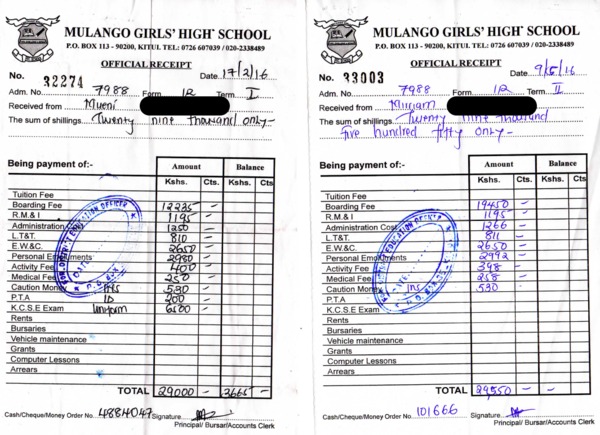 MULANGO GIRLS' HIGH SCHOOL
P.O. BOX 113 - 90200, KITUI, TEL: 0726 607039 / 020-2338489
OFFICIAL RECEIPT
No. 32274 Date 17/2/16
Adm. No. 7988 Form 1R Term I
Received from Mueni
The sum of shillings Twenty nine thousand only -
Being payment of:- Amount Balance
Kshs. Cts. Kshs. Cts.
Tuition Fee
Boarding Fee 12235 -
R.M.& I 1195 -
Administration 1250 -
L.T&T. 810 -
E.W.&C. 2650 -
Personal Emoluments 2980 -
Activity Fee 400 -
Medical Fee 250 -
Caution Money Ins 530 -
P.T.A ID 200 -
K.C.S.E Exam Uniform 6500 -
Rents
Bursaries
Vehicle maintenance
Grants
Computer Lessons
Arrears
TOTAL 29000 - 3665 -
Cash/Cheque/Money Order No. 4884047 Signature
Principal/ Bursar/Accounts Clerk
MULANGO GIRLS' HIGH SCHOOL
P.O. BOX 113 - 90200, KITUI, TEL: 0726 607039 / 020-2338489
OFFICIAL RECEIPT
No. 33003 Date 9/5/16
Adm. No. 7988 Form 1R Term II
Received from Miriam
The sum of shillings Twenty nine thousand
five hundred fifty only -
Being payment of:- Amount Balance
Kshs. Cts. Kshs. Cts
Tuition Fee
Boarding Fee 19450 -
R.M.& I 1195 -
Administration Cost 1266 -
L.T&T. 811 -
E.W.&C. 2650 -
Personal Emoluments 2992 -
Activity Fee 398 -
Medical Fee 258 -
Caution Money Ins 530 -
P.T.A
K.C.S.E Exam
Rents
Bursaries
Vehicle maintenance
Grants
Computer Lessons
Arrears
TOTAL 29550 -
Cash/Cheque/Money Order No. 101666 Signature
Principal/ Bursar/Accounts Clerk